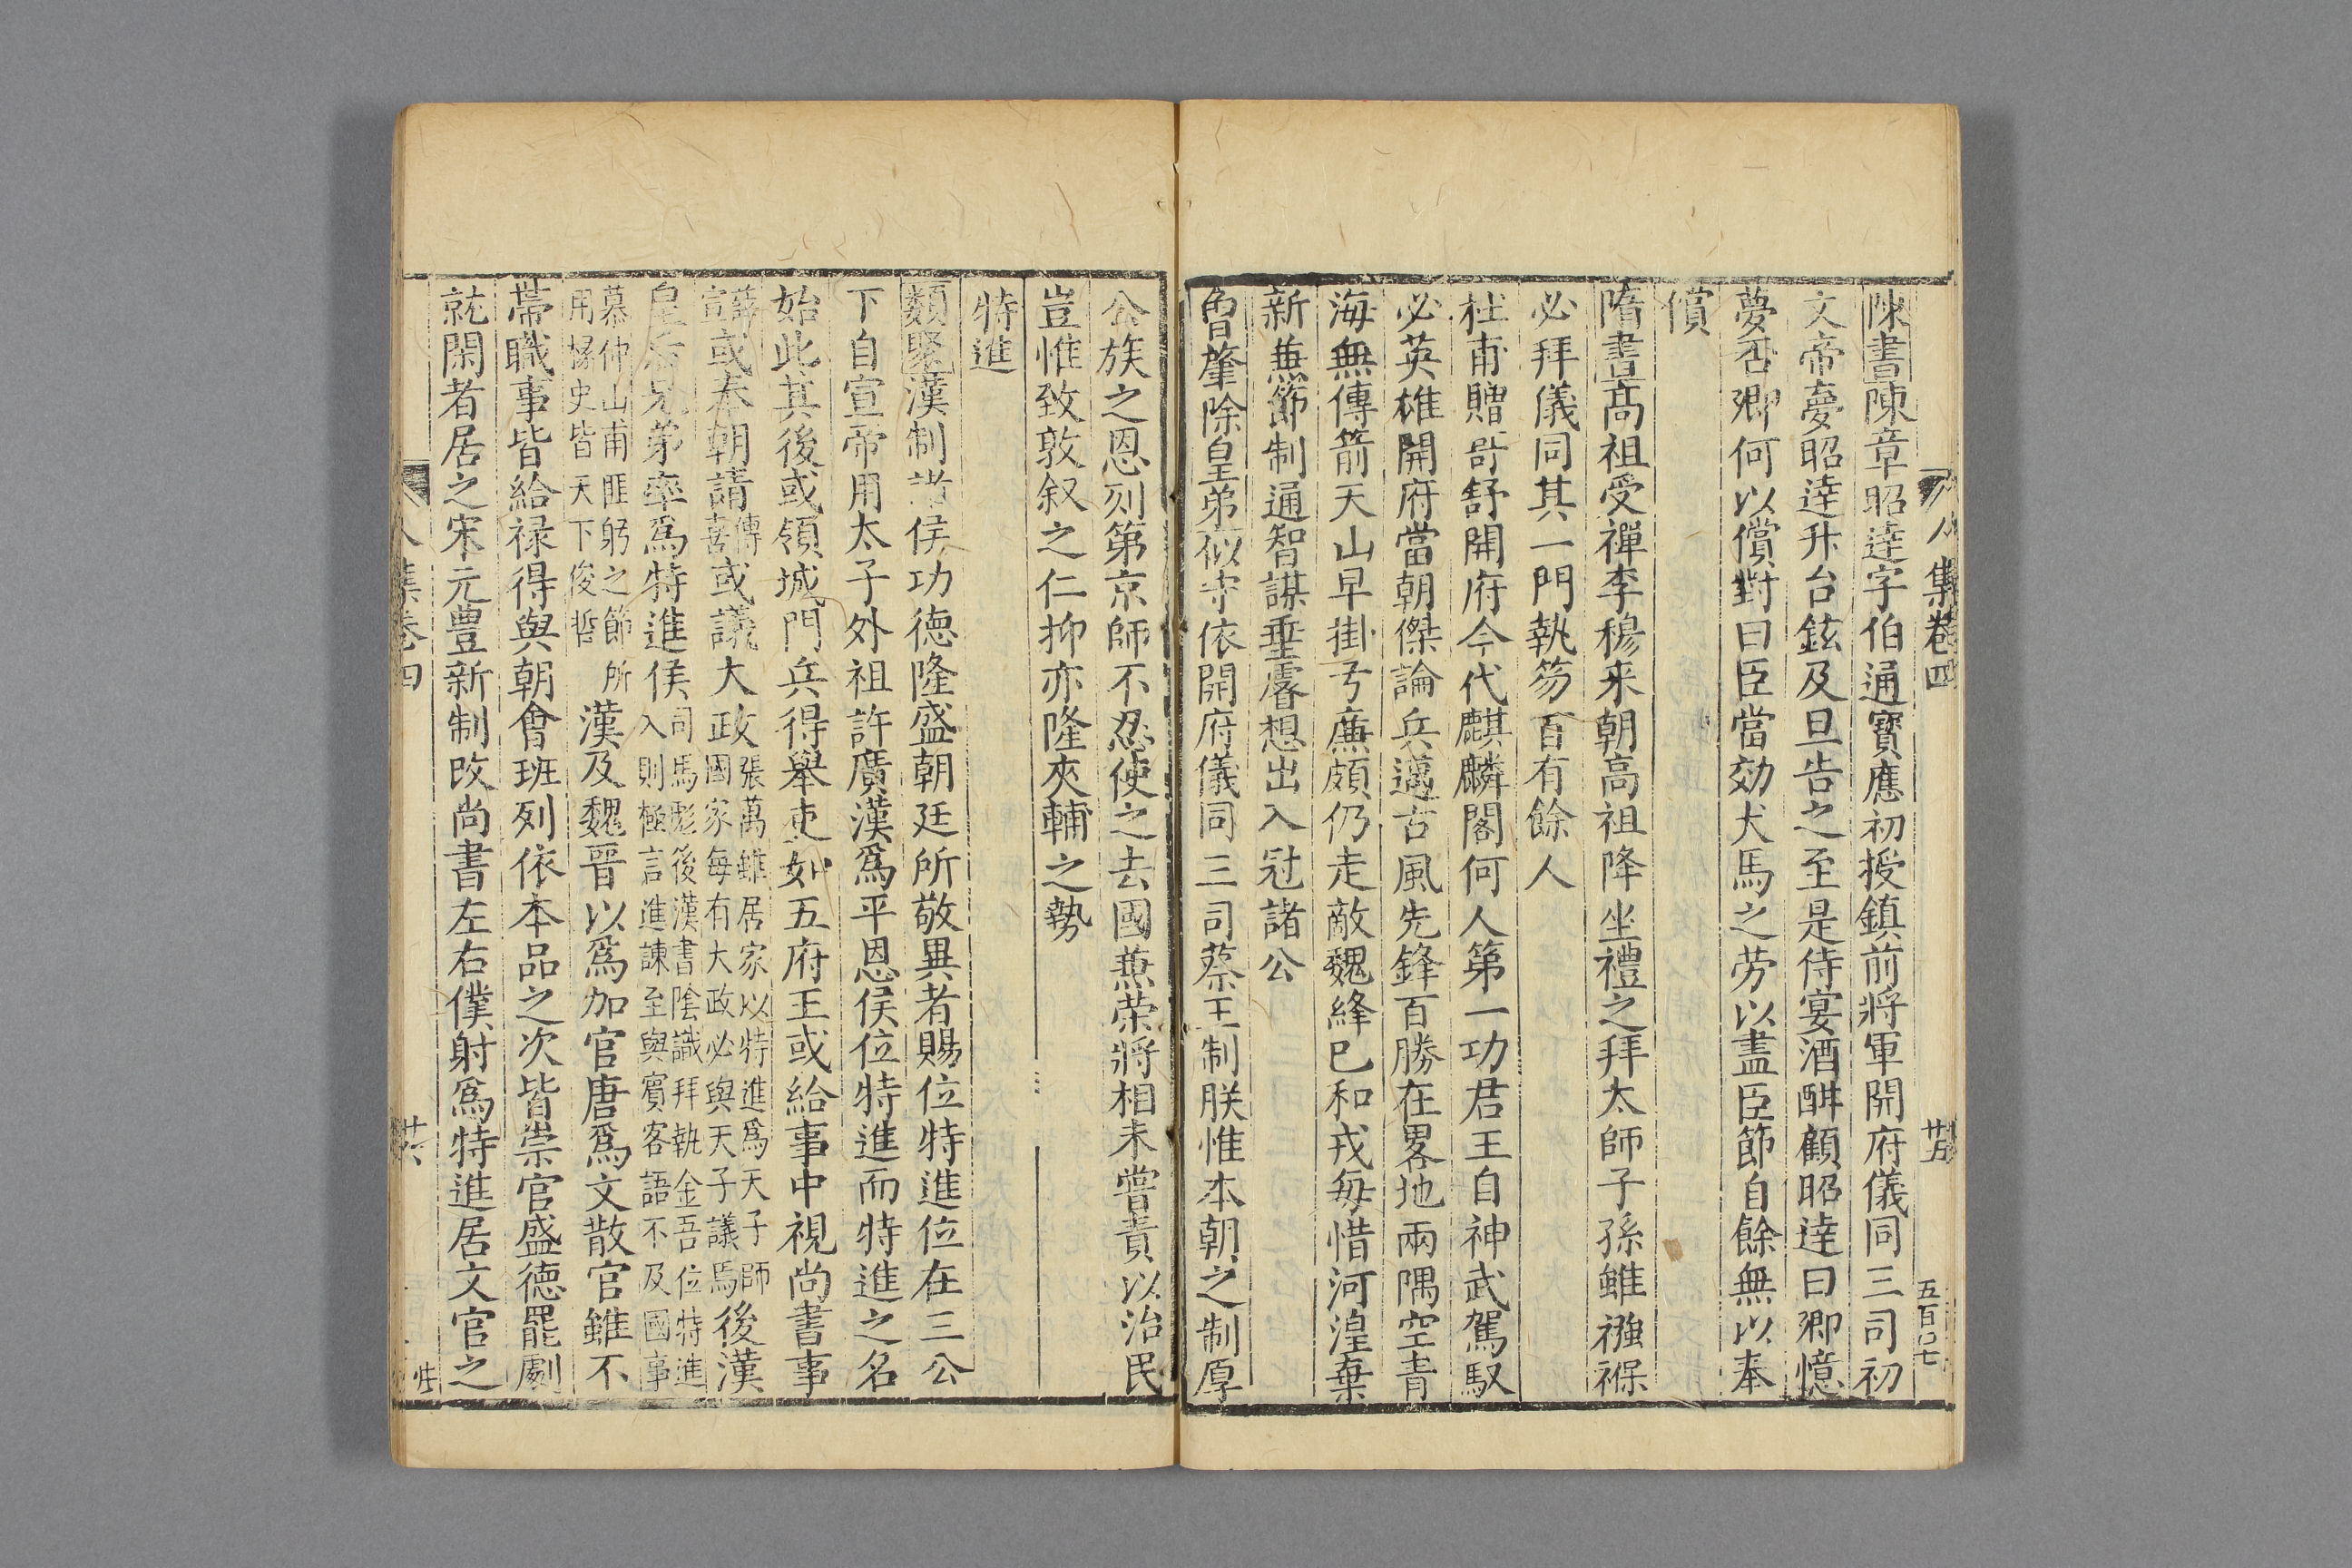 集卷四
五百七
陳書陳章昭逹字伯通寳應初授鎮前將軍開府儀同三司初
文帝夢昭逹升台鉉及旦告之至是侍宴酒酣顧昭逹曰卿憶
夢否卿何以償對曰臣當効犬馬之劳以盡臣節自餘無以奉
償
隋書髙祖受禪李穆来朝高祖降坐禮之拜太師子孫雖襁褓
必拜儀同其一門執笏百有餘人
杜甫贈哥舒開府今代麒麟閣何人第一功君王自神武駕馭
必英雄開府當朝傑論兵邁古風先鋒百勝在畧地兩隅空青
海無傳箭天山早掛弓廉頗仍走敵魏絳已和戎每惜河湟棄
新兼節制通智謀垂睿想出入冠諸公
曾肇除皇弟似守依開府儀同三司蔡王制朕惟本朝之制厚
公族之恩刻第京師不忍使之去國兼荣將相未嘗責以治民
豈惟致敦叙之仁抑亦隆夾輔之勢
特進
類聚漢制諸侯功徳隆盛朝廷所敬異者賜位特進位在三公
下自宣帝用太子外祖許廣漢爲平恩侯位特進而特進之名
始此其後或領城門兵得舉吏如五府王或給事中視尚書事
薛宣或奉朝請傅喜或議大政張萬雖居家以特進爲天子師國家每有大政必與天子議焉後漢
皇后兄弟率爲特進侯司馬彪後漢書陰識拜執金吾位特進入則極言進諫至與賓客語不及國事
慕仲山甫匪躬之節所用掾史皆天下俊哲漢及魏晉以爲加官唐爲文散官雖不
帶職事皆給禄得與朝會班列依本品之次皆崇官盛徳罷劇
就閑者居之宋元豊新制改尚書左右僕射爲特進居文官之
集卷四
廿六